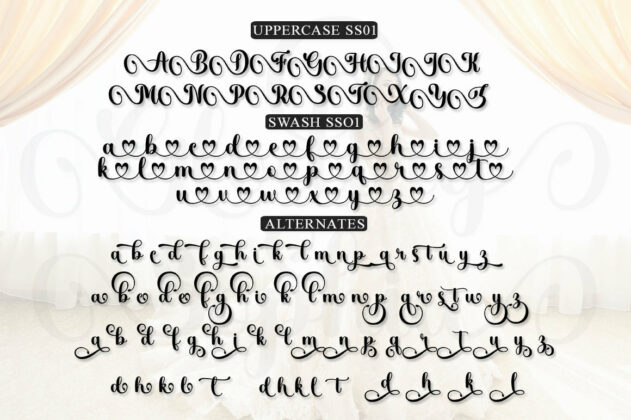 UPPERCASE SS01
A B D F G H I J K
M N P R S T X Y Z
SWASH SS01
a b c d e f g h i j
k l m n o p q r s t
u v w x y z
ALTERNATES
a b c d e f g h i k l m n p q r s t u y z
d h k l t d h k l t d h k l